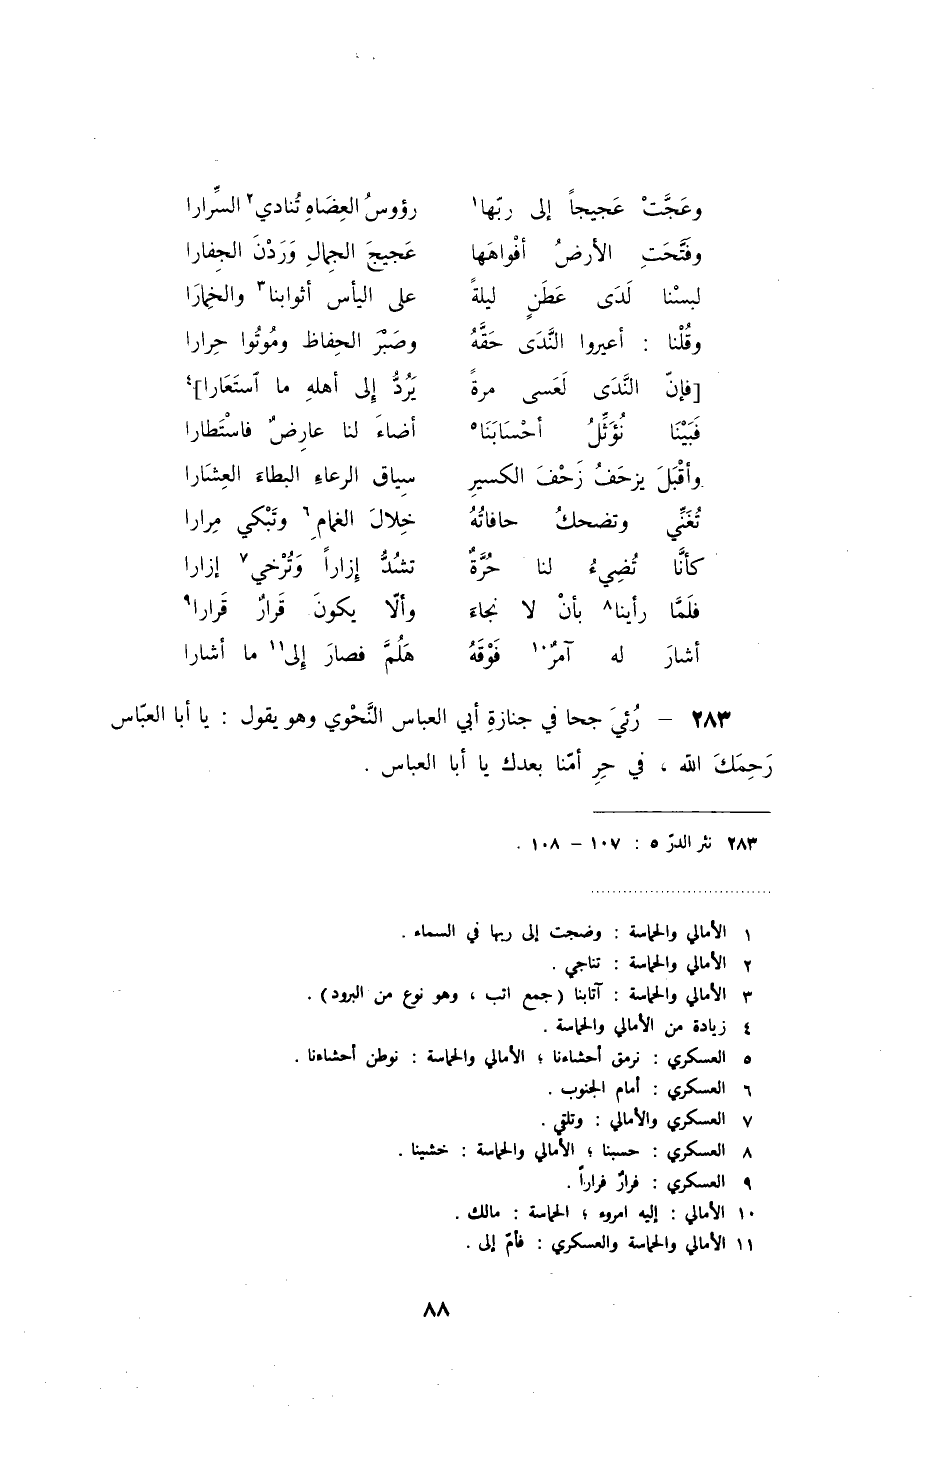 وعَجَّتْ عَجيجاً إلى ربّها١ رؤوسُ العِضَاهِ تُنادي٢ السِّرارا
وفَتَّحَتِ الأرضُ أفْواهَها عَجيجَ الجِمالِ وَرَدْنَ الجِفارا
لبسْنا لَدَى عَطَنٍ ليلةً على اليأس أثوابنا٣ والخِمَارَا
وقُلْنا : أعيروا النَّدَى حَقَّهُ وصَبْرَ الحِفاظ ومُوتُوا حِرارا
[فإنّ النَّدَى لَعَسى مرةً يَرُدُّ إلى أهلهِ ما ٱستَعَارا]٤
فَبَيْنَا نُؤَثِّلُ أحْسابَنَا٥ أضاءَ لنا عارِضٌ فاسْتَطارا
وأقْبَلَ يزحَفُ زَحْفَ الكسيرِ سِياق الرعاءِ البطاءَ العِشَارا
تُغَنِّي وتضحكُ حافاتُهُ خِلالَ الغمامِ٦ وتَبْكي مِرارا
كأنَّا تُضِيءُ لنا حُرَّةٌ تشُدُّ إزاراً وَتُرْخي٧ إزارا
فلَمَّا رأينا٨ بأنْ لا نجاءَ وألّا يكونَ قَرارٌ قَرارا٩
أشارَ له آمرٌ١٠ فَوْقَهُ هَلُمَّ فصارَ إلى١١ ما أشارا
٢٨٣ – رُئيَ جحا في جنازةِ أبي العباس النَّحْوي وهو يقول : يا أبا العبّاس
رَحِمَكَ الله ، في حِرِ أمّنا بعدك يا أبا العباس .
٢٨٣ نثر الدرّ ٥ : ١٠٧ – ١٠٨ .
١ الأمالي والحماسة : وضجت إلى ربها في السماء .
٢ الأمالي والحماسة : تناجي .
٣ الأمالي والحماسة : آتابنا (جمع اتب ، وهو نوع من البرود) .
٤ زيادة من الأمالي والحماسة .
٥ العسكري : نرمق أحشاءنا ؛ الأمالي والحماسة : نوطن أحشاءنا .
٦ العسكري : أمام الجنوب .
٧ العسكري والأمالي : وتلقي .
٨ العسكري : حسبنا ؛ الأمالي والحماسة : خشينا .
٩ العسكري : فرارٌ فراراً .
١٠ الأمالي : إليه امروء ؛ الحماسة : مالك .
١١ الأمالي والحماسة والعسكري : فأمّ إلى .
٨٨